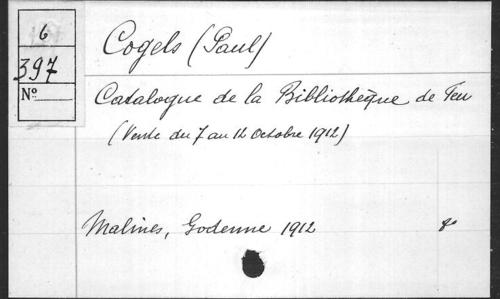 6
Cogels (Paul)
397
Nº
Catalogue de la Bibliothèque de Feu
(Vente du 7 au 12 Octobre 1912)
Malines, Godenne 1912